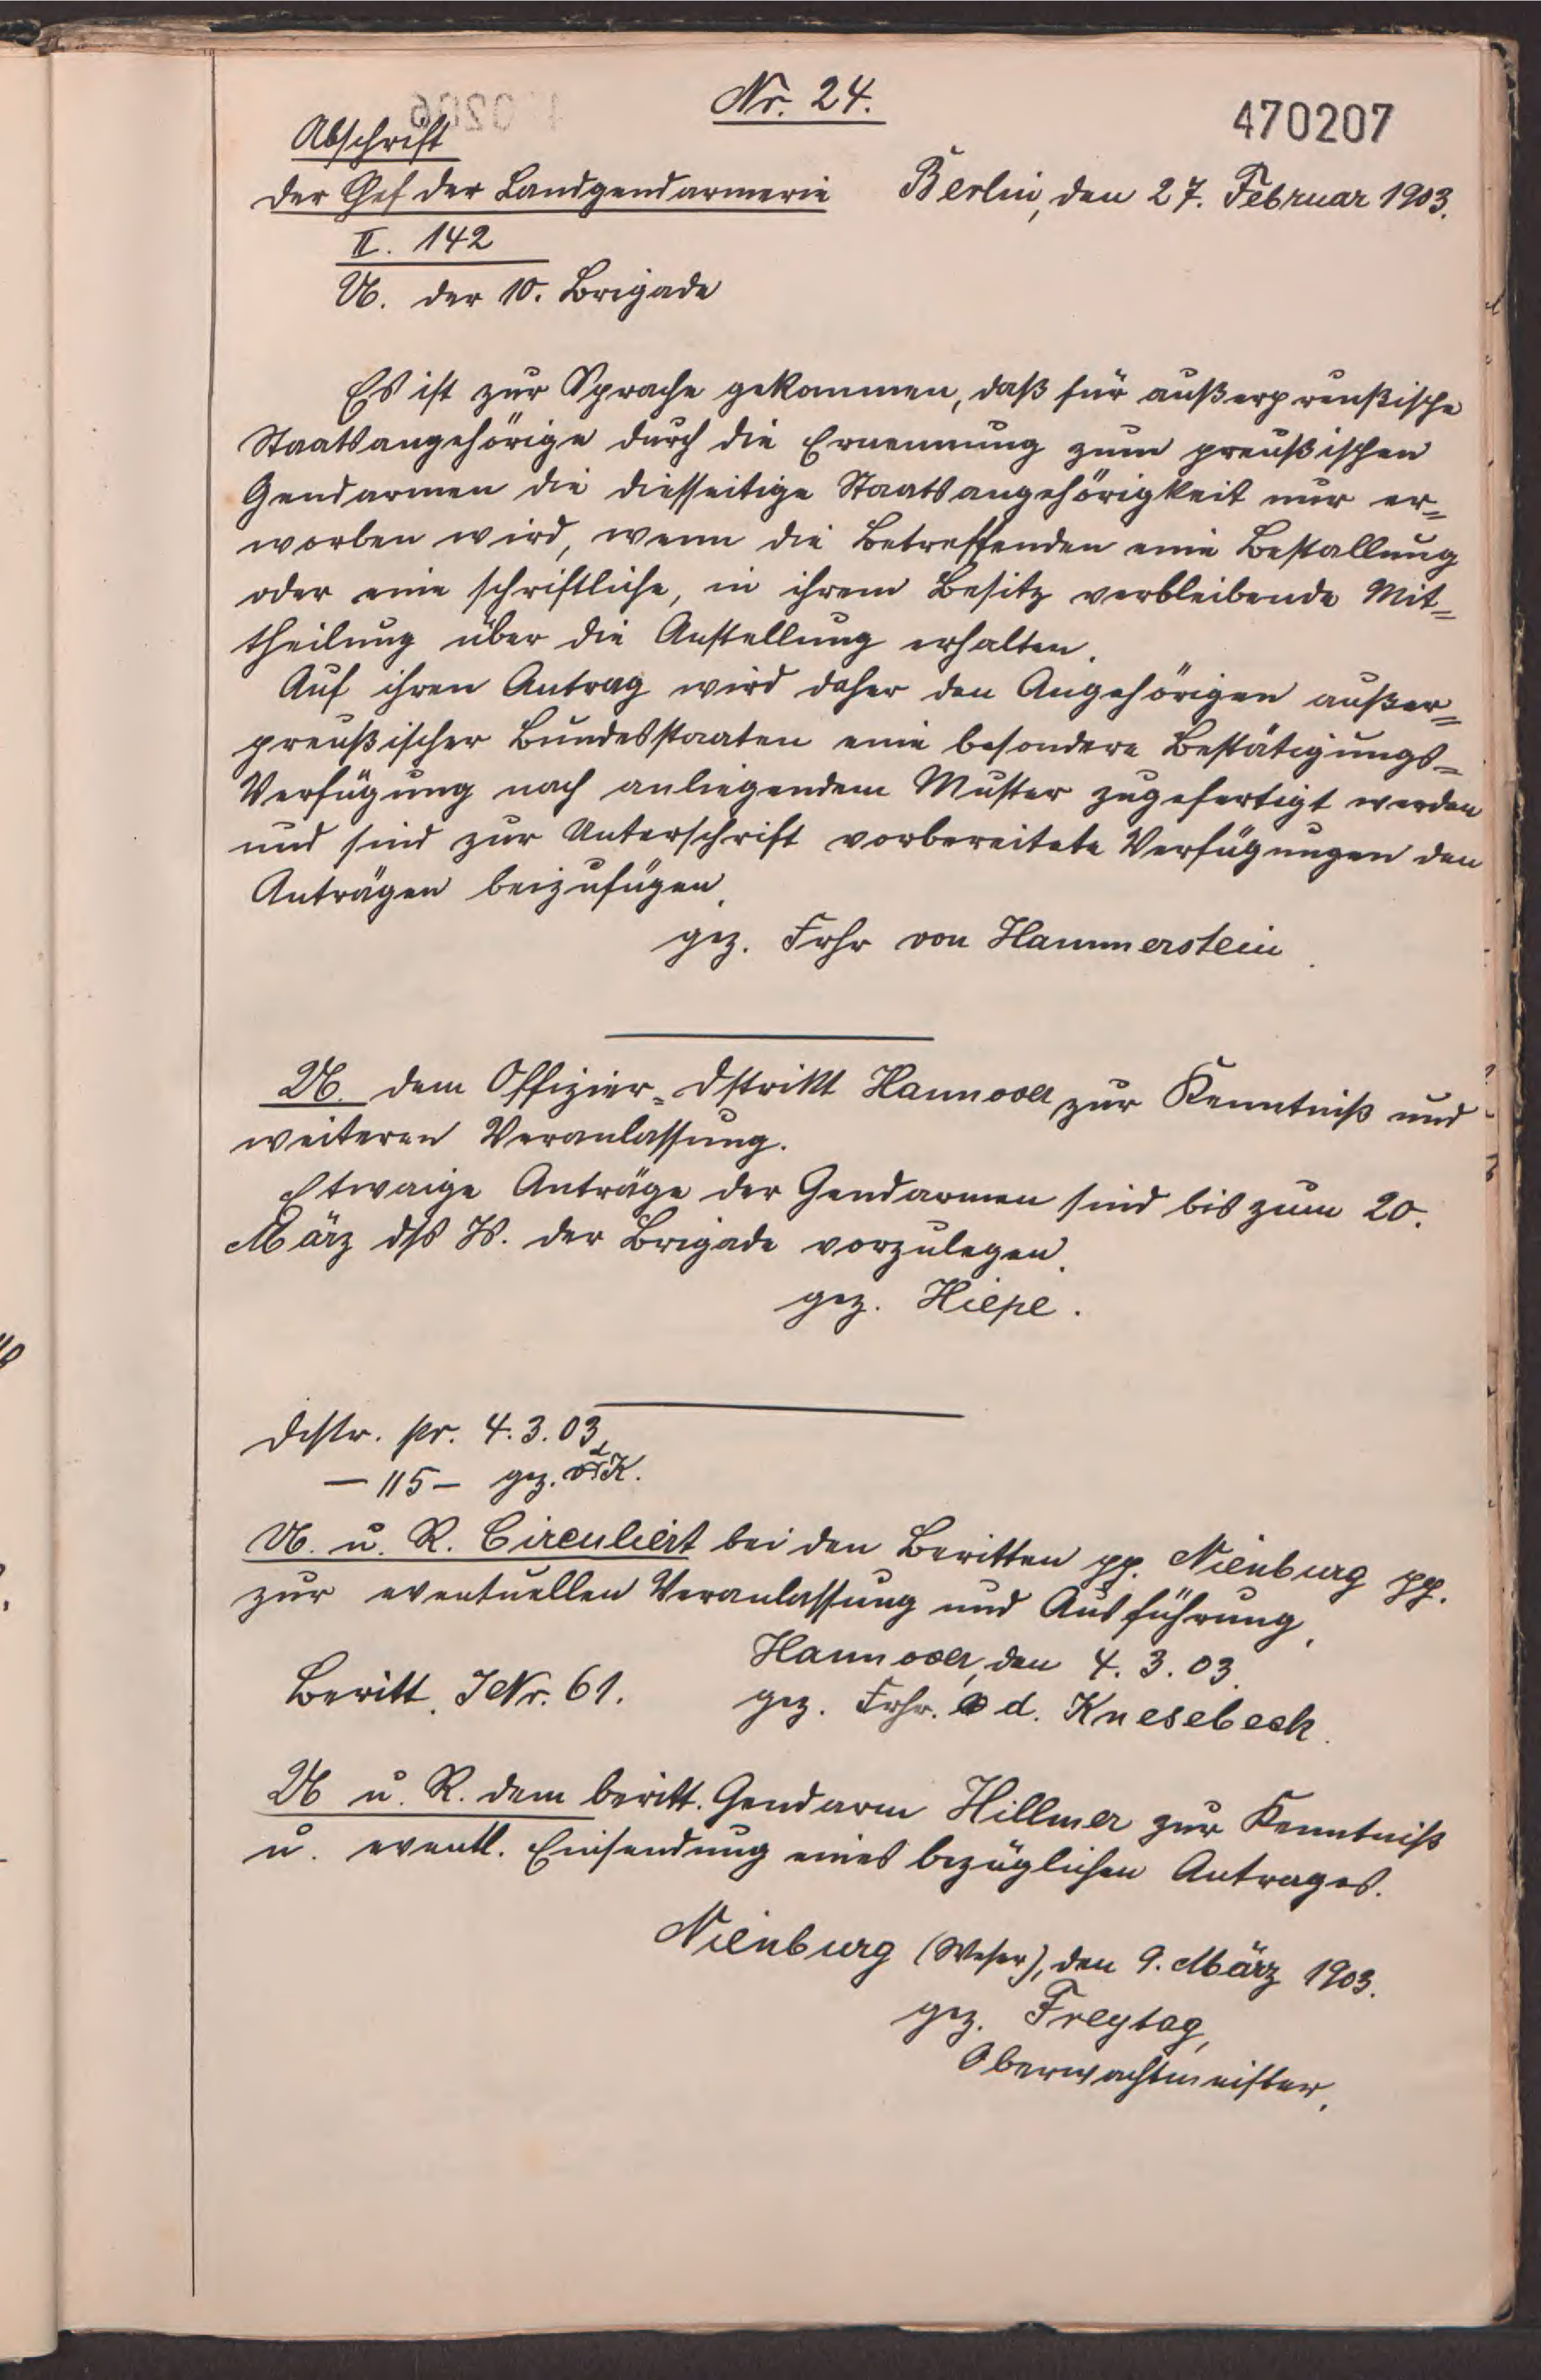 Nr. 24.
470207
Abschrift
Der Chef der Landgendarmerie Berlin, den 27. Februar 1903.
II. 142
U. der 10. Brigade
Es ist zur Sprache gekommen, daß für außerpreußische
Staatsangehörige durch die Ernennung zum preußischen
Gendarmen die diesseitige Staatsangehörigkeit nur er=
worben wird, wenn die Betreffenden eine Bestallung
oder eine schriftliche, in ihrem Besitz verbleibende Mit=
theilung über die Anstellung erhalten.
Auf ihren Antrag wird daher den Angehörigen außer=
preußischer Bundesstaaten eine besondere Bestätigungs=
Verfügung nach anliegendem Muster zugefertigt werden
und sind zur Unterschrift vorbereitete Verfügungen den
Anträgen beizufügen.
gez. Frhr von Hammerstein.
U. dem Offizier=Dstrikt Hannover zur Kenntniß und
weiteren Veranlassung.
Etwaige Anträge der Gendarmen sind bis zum 20.
März dss Js. der Brigade vorzulegen.
gez. Hiepe.
Distr. pr. 4.3.03.
— 115 — gez. K.
U. u. R. Circuliert bei den Beritten pp. Nienburg pp.
zur eventuellen Veranlassung und Ausführung.
Hannover, den 4.3.03.
Beritt. JNr. 61.
gez. Frhr. d. Knesebeck.
U u. R. dem beritt. Gendarm Hillmer zur Kenntniß
u. eventl. Einsendung eines bezüglichen Antrages.
Nienburg (Weser), den 9. März 1903.
gez. Freytag,
Oberwachtmeister.